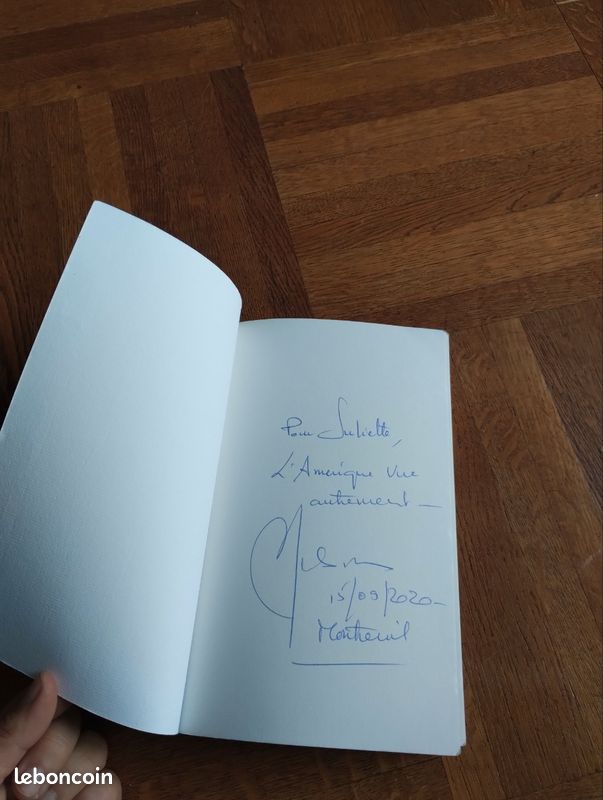 Pour Juliette,
L'Amérique vue
autrement –
15/09/2020 –
Montreuil
leboncoin